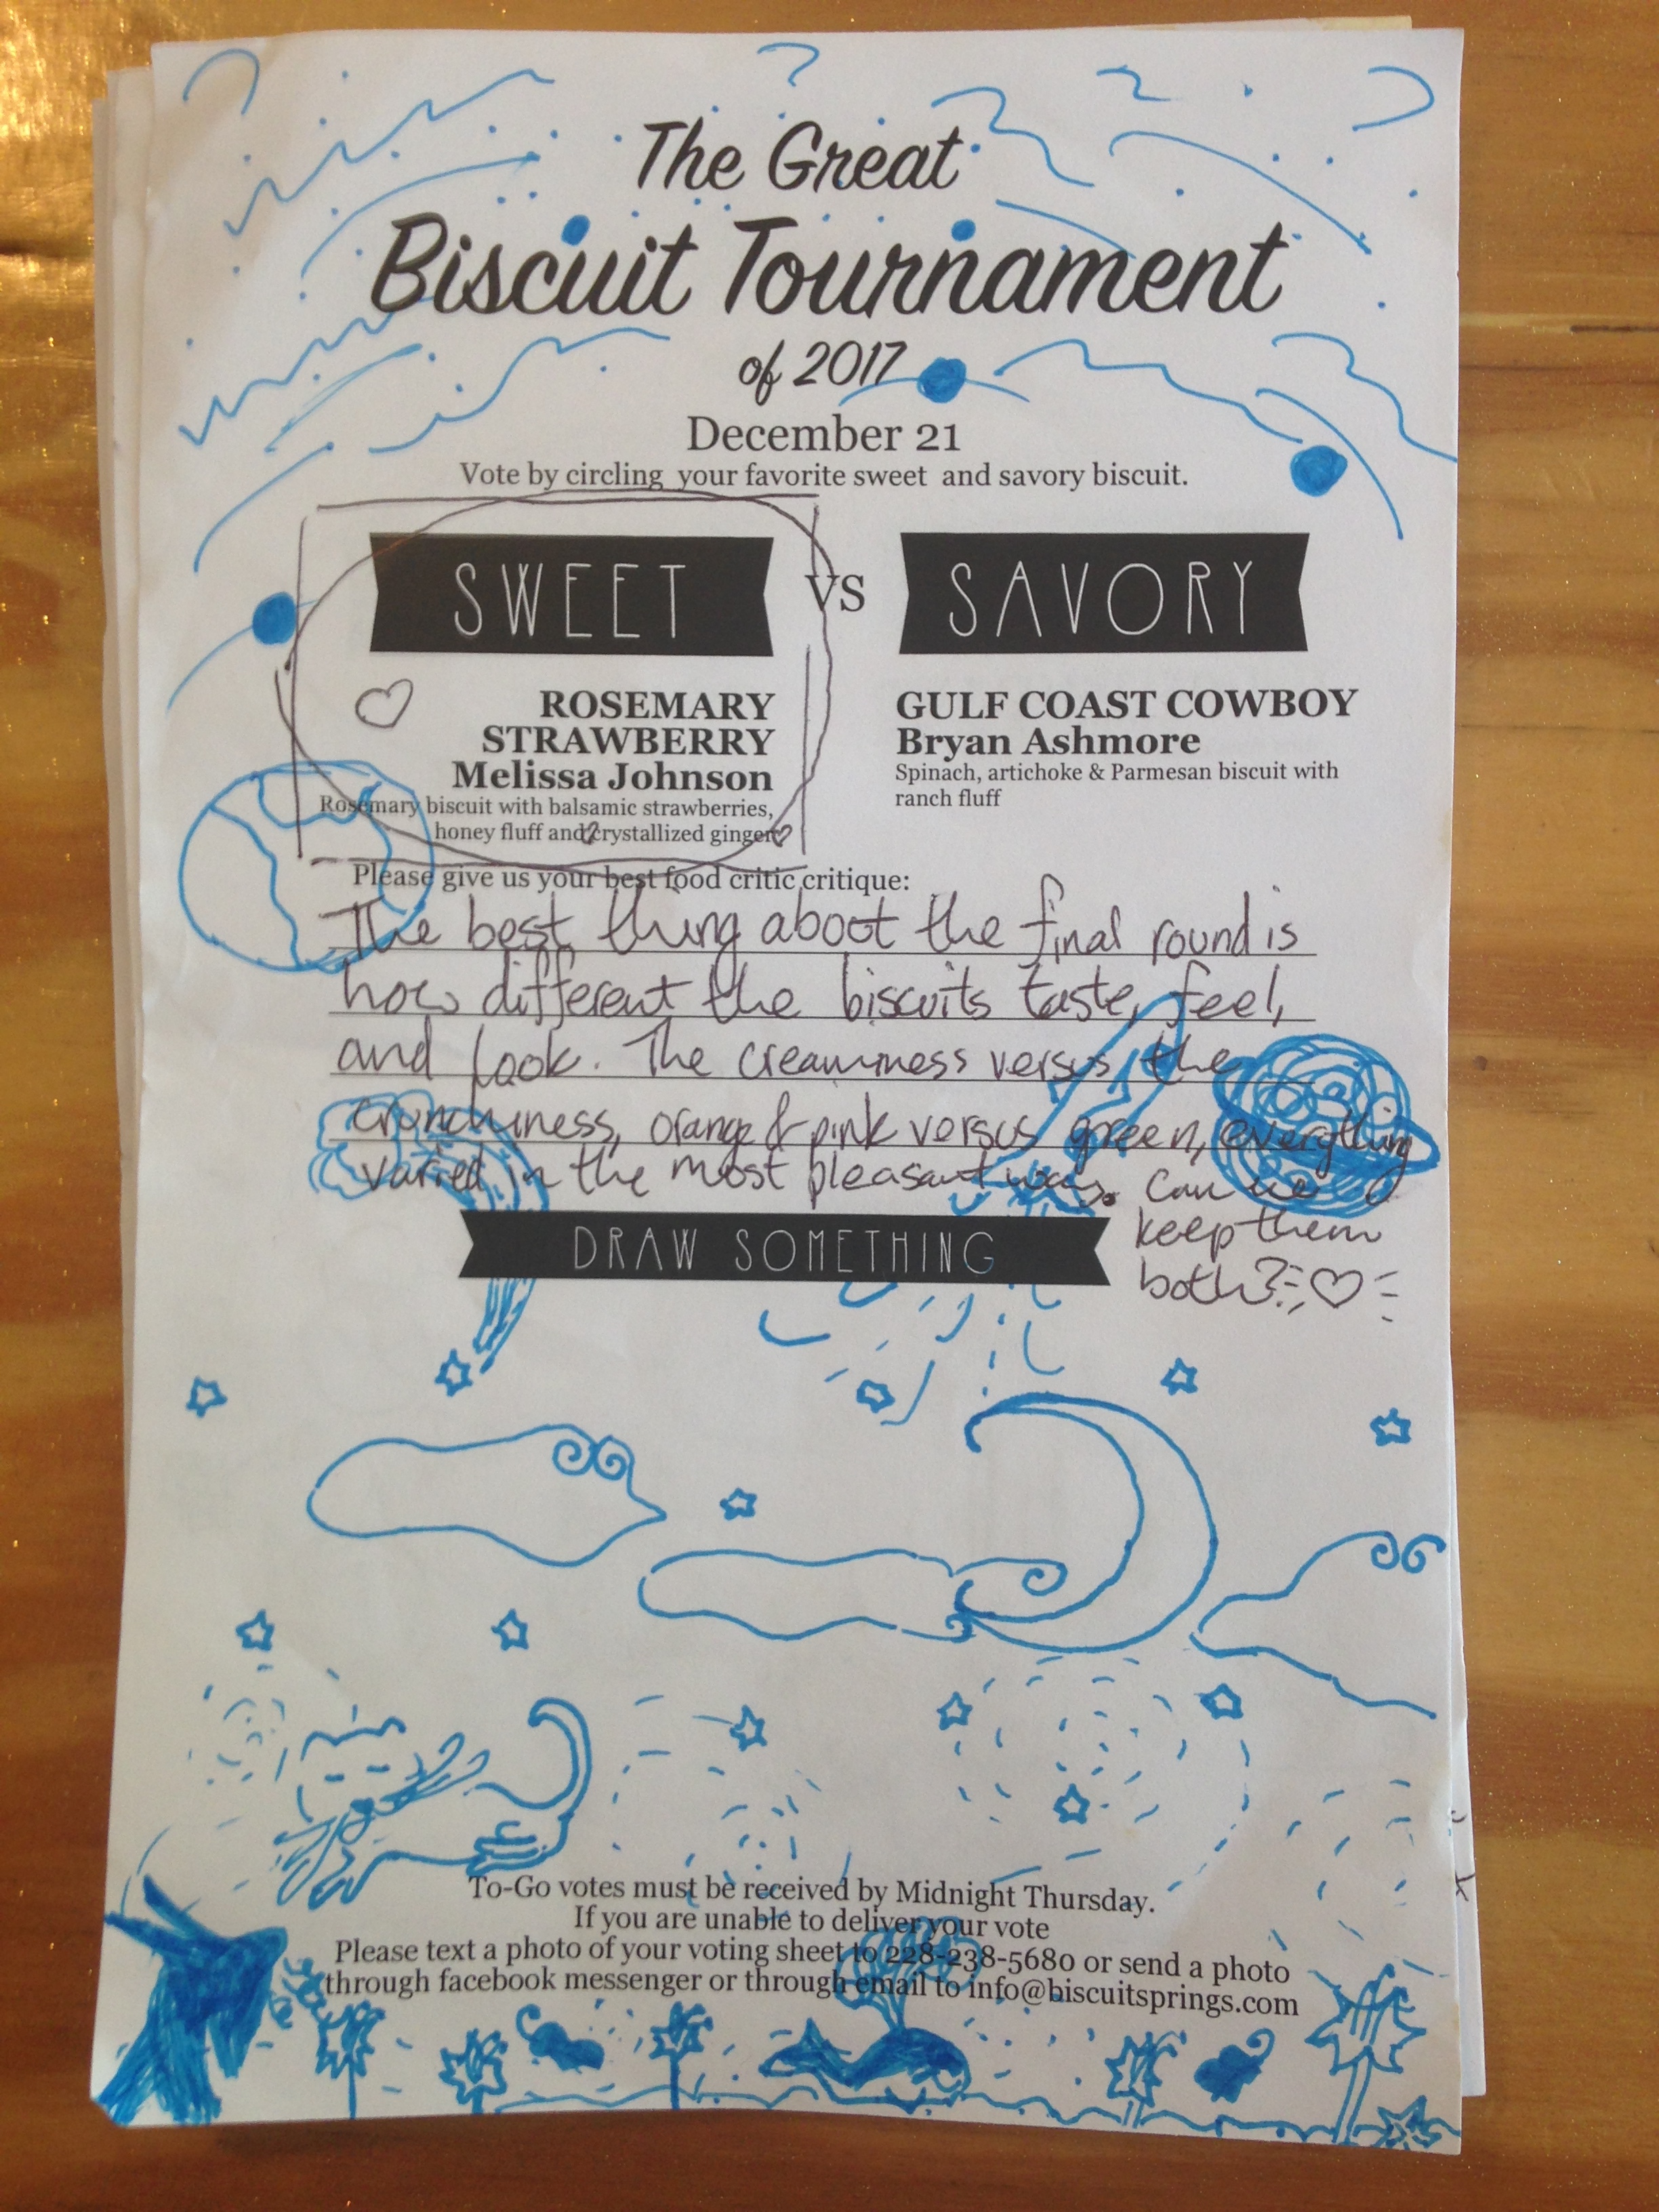 The Great
Biscuit Tournament
of 2017
December 21
Vote by circling your favorite sweet and savory biscuit.
SWEET VS SAVORY
ROSEMARY
STRAWBERRY
Melissa Johnson
Rosemary biscuit with balsamic strawberries,
honey fluff and crystallized ginger
GULF COAST COWBOY
Bryan Ashmore
Spinach, artichoke & Parmesan biscuit with
ranch fluff
Please give us your best food critic critique:
The best thing about the final round is
how different the biscuits taste, feel,
and look. The creaminess versus the
crunchiness, orange & pink versus green, everything
varied in the most pleasant way. Can we
keep them
both?
DRAW SOMETHING
To-Go votes must be received by Midnight Thursday.
If you are unable to deliver your vote
Please text a photo of your voting sheet to 228-238-5680 or send a photo
through facebook messenger or through email to info@biscuitsprings.com